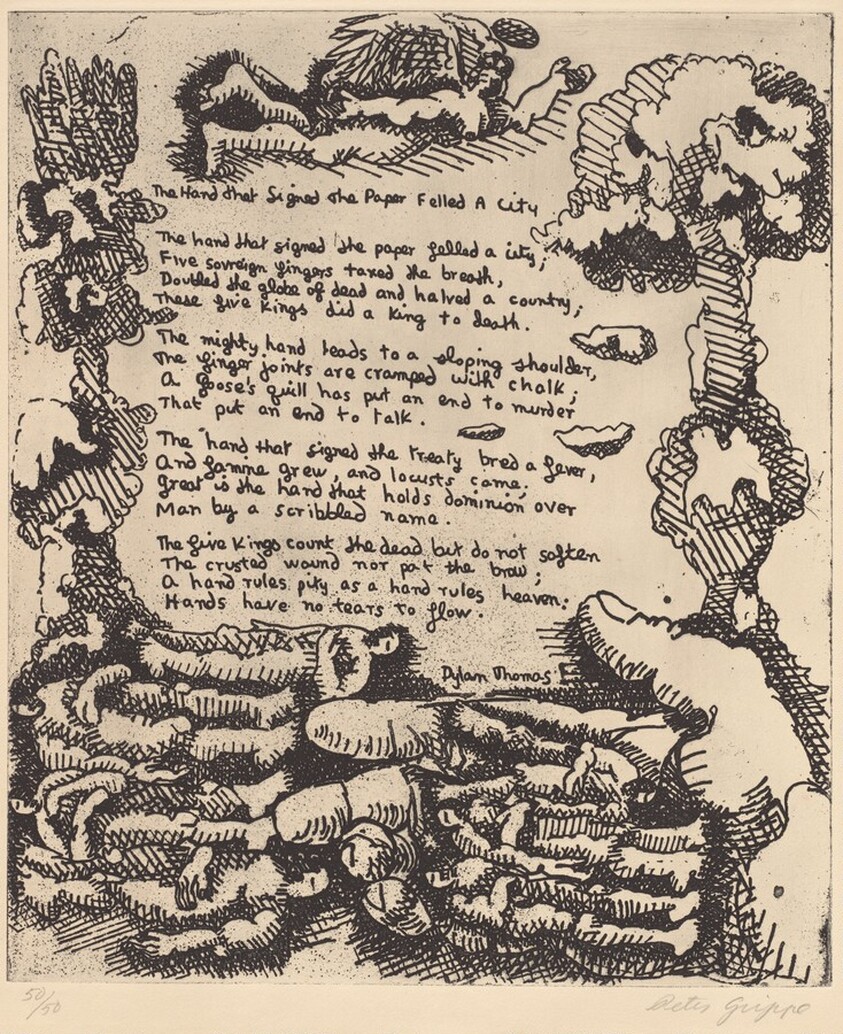 The Hand That Signed The Paper Felled A City
The hand that signed the paper felled a city;
Five sovreign fingers taxed the breath,
Doubled the globe of dead and halved a country;
These five Kings did a King to death.
The mighty hand leads to a sloping shoulder,
The finger joints are cramped with chalk;
A Goose's quill has put an end to murder
That put an end to talk.
The hand that signed the treaty bred a fever,
And famine grew, and locusts came;
Great is the hand that holds dominion over
Man by a scribbled name.
The five Kings count the dead but do not soften
The crusted wound nor pat the brow;
A hand rules pity as a hand rules heaven;
Hands have no tears to flow.
Dylan Thomas
50/50
Peter Grippo